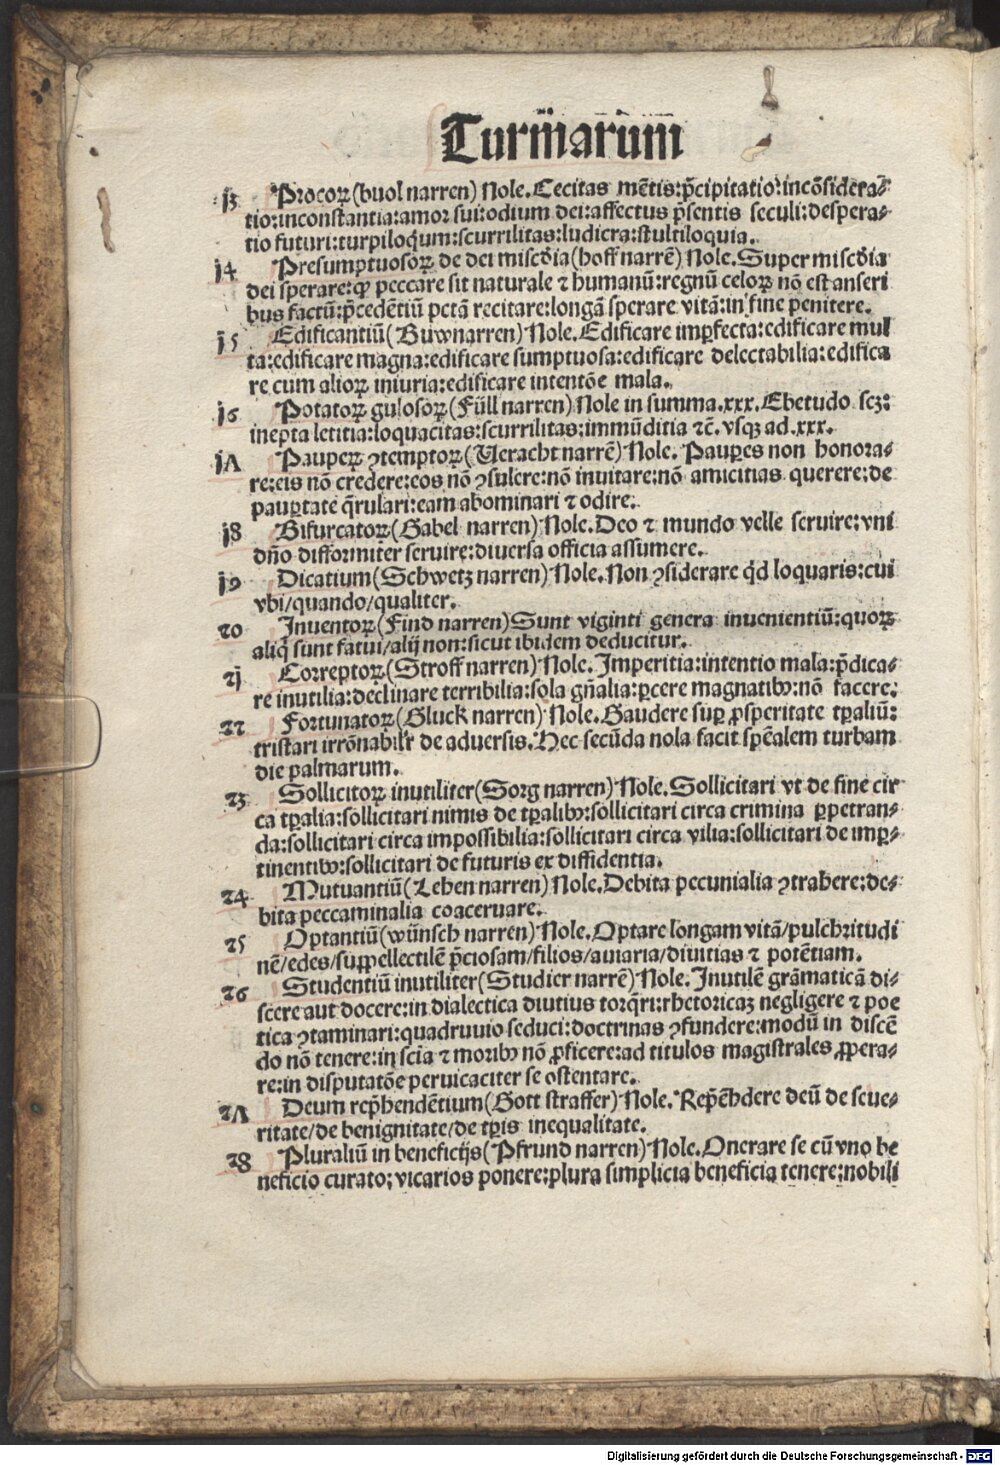 Turm̃arum
j3 Procoꝝ (buol narren) Nole. Cecitas mẽtis: p̃cipitatio: incõsidera⸗
tio: inconstantia: amor sui: odium dei: affectus p̃sentis seculi: despera⸗
tio futuri: turpiloqium: scurrilitas: ludicra: stultiloquia.
j4 Presumptuosoꝝ de dei misc̃dia (hoff narrẽ) Nole. Super misc̃dia
dei sperare: ꝙ peccare sit naturale ⁊ humanũ: regnũ celoꝝ nõ est anseri
bus factũ: p̃cedẽtiũ pctã recitare: longã sperare vitã: in fine penitere.
j5 Edificantiũ (Buwnarren) Nole. Edificare imꝑfecta: edificare mul
ta: edificare magna: edificare sumptuosa: edificare delectabilia: edifica
re cum alioꝝ iniuria: edificare intentõe mala.
j6 Potatoꝝ gulosoꝝ (Füll narren) Nole in summa .xxx. Ebetudo scꝫ:
inepta letitia: loquacitas: scurrilitas: immũditia ⁊c̃. vsqꝫ ad .xxx.
jΛ Pauperꝝ ꝯtemptoꝝ (Veracht narrẽ) Nole. Pauꝑes non honora⸗
re: eis nõ credere: eos nõ ꝯsulere: nõ inuitare: nõ amicitias querere: de
pauꝑtate q̃rulari: eam abominari ⁊ odire.
j8 Bifurcatoꝝ (Gabel narren) Nole. Deo ⁊ mundo velle seruire: vni
dño difformiter seruire: diuersa officia assumere.
j9 Dicatium (Schwetz narren) Nole. Non ꝯsiderare q̃d loquaris: cui
vbi/ quando/ qualiter.
20 Inuentoꝝ (Find narren) Sunt viginti genera inuenientiũ: quoꝝ
aliq̃ sunt fatui/ alij non: sicut ibidem deducitur.
2j Correptoꝝ (Stroff narren) Nole. Imperitia: intentio mala: p̃dica⸗
re inutilia: declinare terribilia: sola gñalia: ꝑcere magnatibꝰ: nõ facere:
22 Fortunatoꝝ (Gluck narren) Nole. Gaudere suꝑ ꝓsperitate tꝑaliũ:
tristari irrõnabilr̃ de aduersis. Hec secũda nola facit spẽalem turbam
die palmarum.
23 Sollicitoꝝ inutiliter (Sorg narren) Nole. Sollicitari vt de fine cir
ca tꝑalia: sollicitari nimis de tꝑalibꝰ: sollicitari circa crimina ꝑpetran⸗
da: sollicitari circa impossibilia: sollicitari circa vilia: sollicitari de imꝑ⸗
tinentibꝰ: sollicitari de futuris ex diffidentia.
24 Mutuantiũ (Lehen narren) Nole. Debita pecunialia ꝯtrahere: de⸗
bita peccaminalia coaceruare.
25 Optantiũ (wünsch narren) Nole. Optare longam vitã/ pulchritudi
nẽ/ edes/ suppellectilẽ p̃ciosam/ filios/ auiaria/ diuitias ⁊ potẽtiam.
26 Studentiũ inutiliter (Studier narrẽ) Nole. Inutilẽ grãmaticã di⸗
scere aut docere: in dialectica diutius torq̃ri: rhetoricaꝫ negligere ⁊ poe
tica ꝯtaminari: quadruuio seduci: doctrinas ꝯfundere: modũ in discẽ
do nõ tenere: in scĩa ⁊ moribꝰ nõ ꝓficere: ad titulos magistrales ꝓpera⸗
re: in disputatõe peruicaciter se ostentare.
2Λ Deum rep̃hendẽtium (Gott straffer) Nole. Rep̃hẽdere deũ de seue⸗
ritate/ de benignitate/ de tꝑis inequalitate.
28 Pluraliũ in beneficijs (Pfrund narren) Nole. Onerare se cũ vno be
neficio curato: vicarios ponere: plura simplicia beneficia tenere: nobili
Digitalisierung gefördert durch die Deutsche Forschungsgemeinschaft - DFG